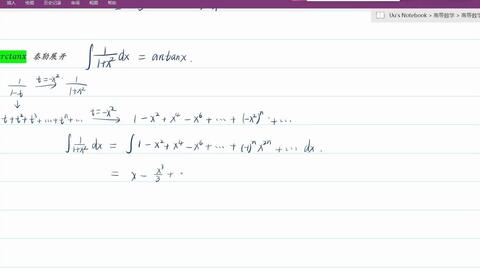 文件 开始 插入 绘图 历史记录 审阅 视图 帮助
Uu's Notebook > 高等数学 > 高等数学
rctanx 泰勒展开 ∫ 1/(1+x²) dx = arctanx.
1/(1-t) t=-x² → 1/(1+x²)
↓
t+t²+t³+…+tⁿ+… t=-x² → 1-x²+x⁴-x⁶+…+(-x²)ⁿ+…
∫ 1/(1+x²) dx = ∫ 1-x²+x⁴-x⁶+…+(-1)ⁿx²ⁿ+… dx.
= x - x³/3 + ·